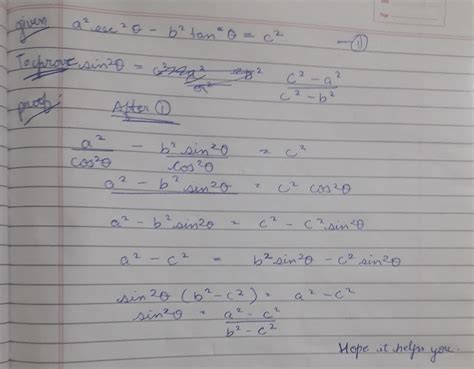 given a² sec²θ - b² tan²θ = c² —①
To prove sin²θ = (c² - a²)/(c² - b²)
proof :
After ①
a²/cos²θ - b² sin²θ/cos²θ = c²
a² - b² sin²θ = c² cos²θ
a² - b² sin²θ = c² - c² sin²θ
a² - c² = b² sin²θ - c² sin²θ
sin²θ (b² - c²) = a² - c²
sin²θ = (a² - c²)/(b² - c²)
Hope it helps you.